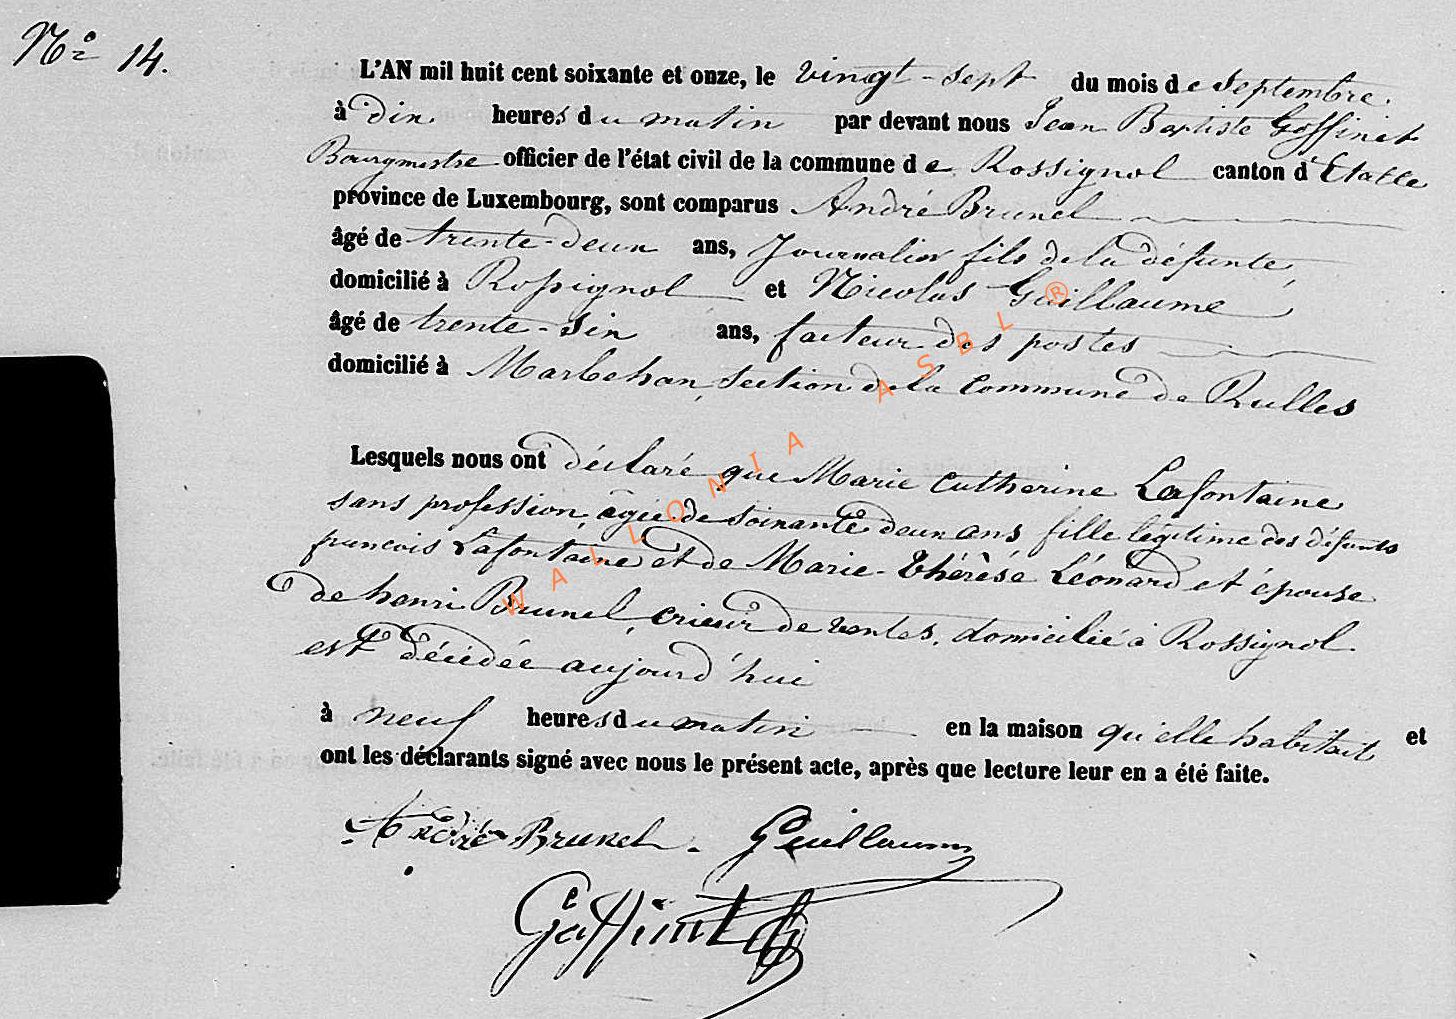 No 14.
L'AN mil huit cent soixante et onze, le vingt-sept du mois de Septembre.
à dix heures du matin par devant nous Jean Baptiste Goffinet
Bourgmestre officier de l'état civil de la commune de Rossignol canton d'Etalle
province de Luxembourg, sont comparus André Brunel
âgé de trente-deux ans, Journalier fils de la défunte,
domicilié à Rossignol et Nicolas Guillaume
âgé de trente-six ans, facteur des postes
domicilié à Marbehan, section de la commune de Rulles
Lesquels nous ont déclaré que Marie Catherine Lafontaine
sans profession, âgée de soixante deux ans fille légitime des défunts
francois Lafontaine et de Marie-Thérèse Léonard et épouse
de henri Brunel, crieur de ventes, domicilié à Rossignol
est décédée aujourd'hui
à neuf heures du matin en la maison qu'elle habitait et
ont les déclarants signé avec nous le présent acte, après que lecture leur en a été faite.
André Brunel. Guillaume
Goffinet
WALLONIA ASBL ®